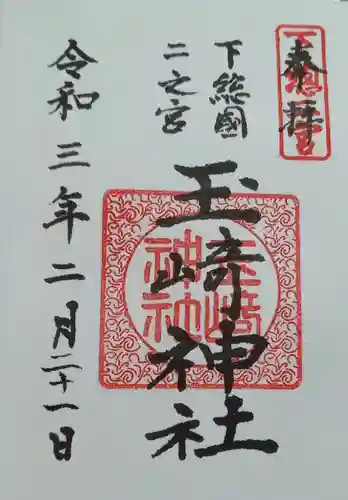 奉拝
下総國
二之宮
玉﨑神社
令和三年二月二十一日
玉﨑神社